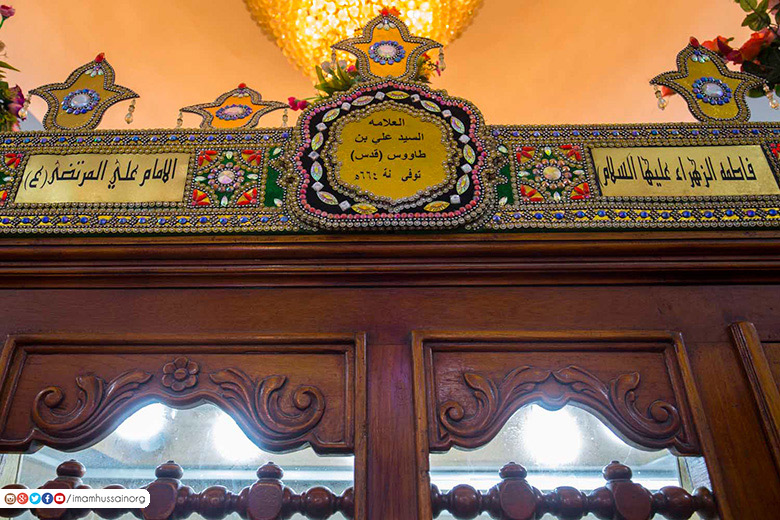 فاطمة الزهراء عليها السلام
العلامه
السيد علي بن
طاووس (قدس)
توفي نة ٦٦٤ه
الامام علي المرتضى (ع)
imamhussainorg